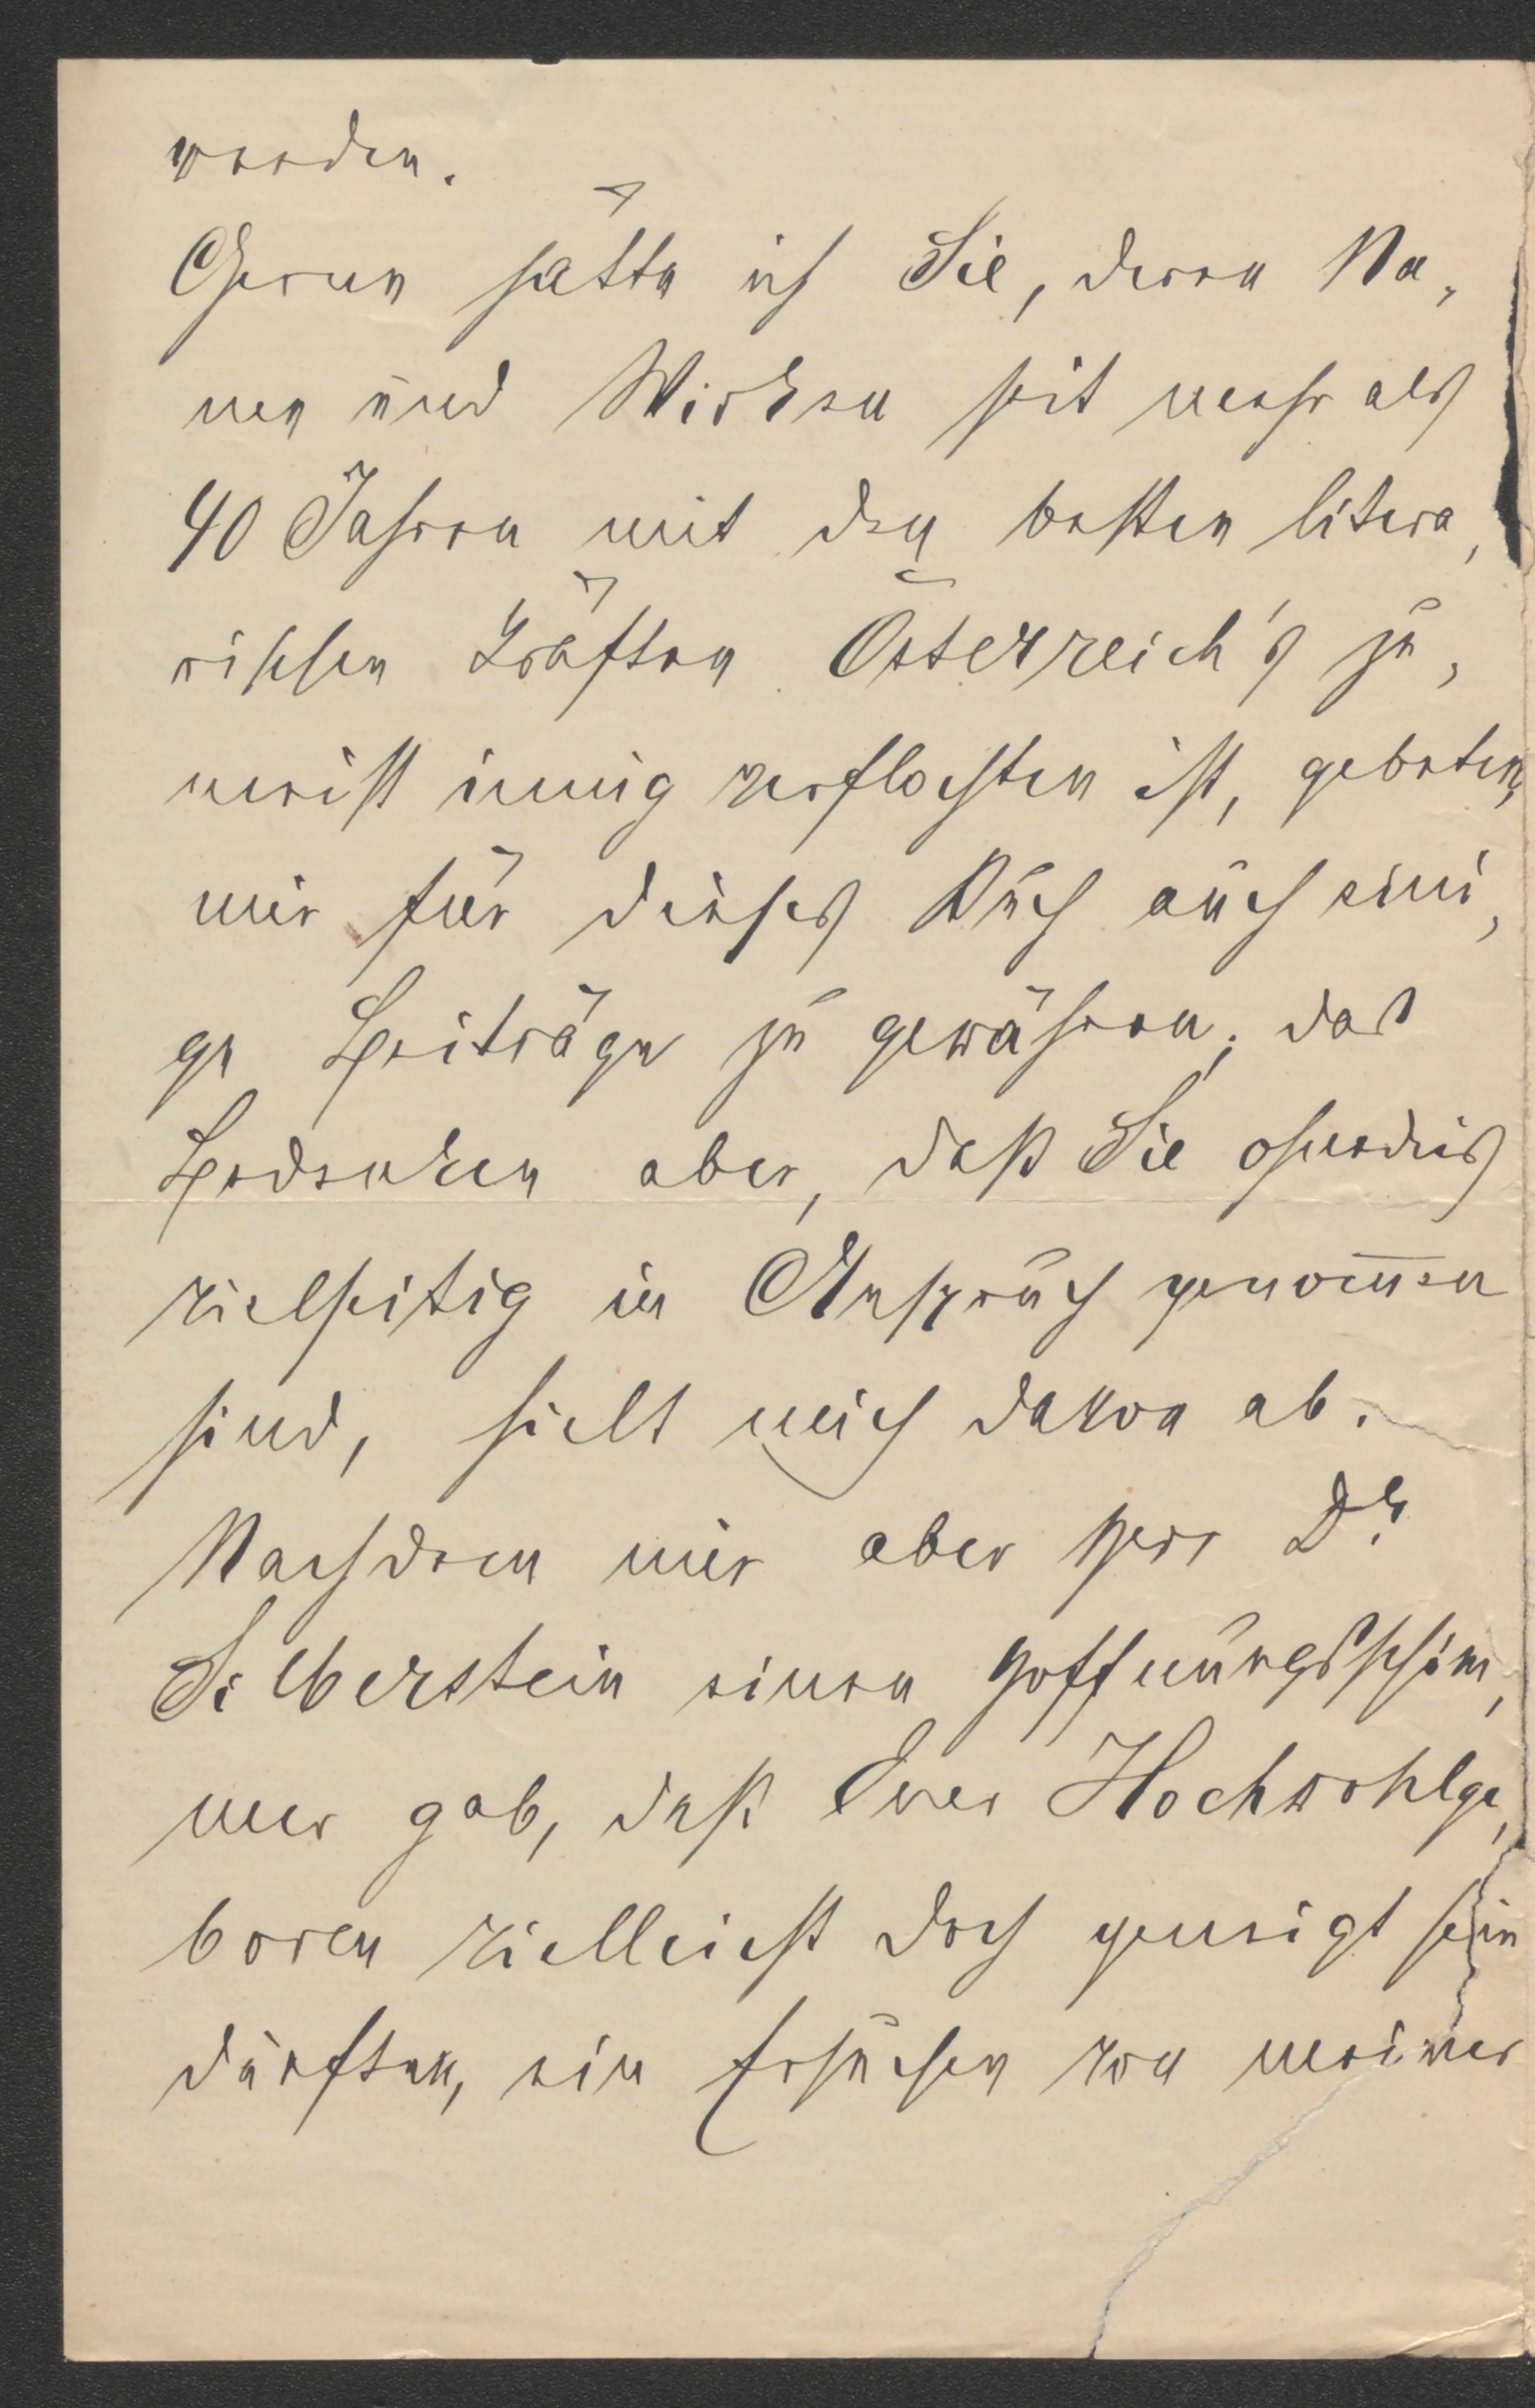 worden.
Gerne hätte ich Sie, deren Na,
me und Wirken seit mehr als
40 Jahren mit den besten litera,
rischen Kräften Österreich's zu,
meist innig verflochten ist, gebeten,
mir für dieses Buch auch eini,
ge Beiträge zu gewähren; das
Bedenken aber, daß Sie ohnedies
vielseitig in Anspruch genom̄en
sind, hielt mich davon ab.
Nachdem mir aber Herr Dr.
Silberstein einen Hoffnungsschim,
mer gab, daß Euer Hochwohlge,
boren vielleicht doch geneigt sein
dürften, ein Ersuchen von meiner